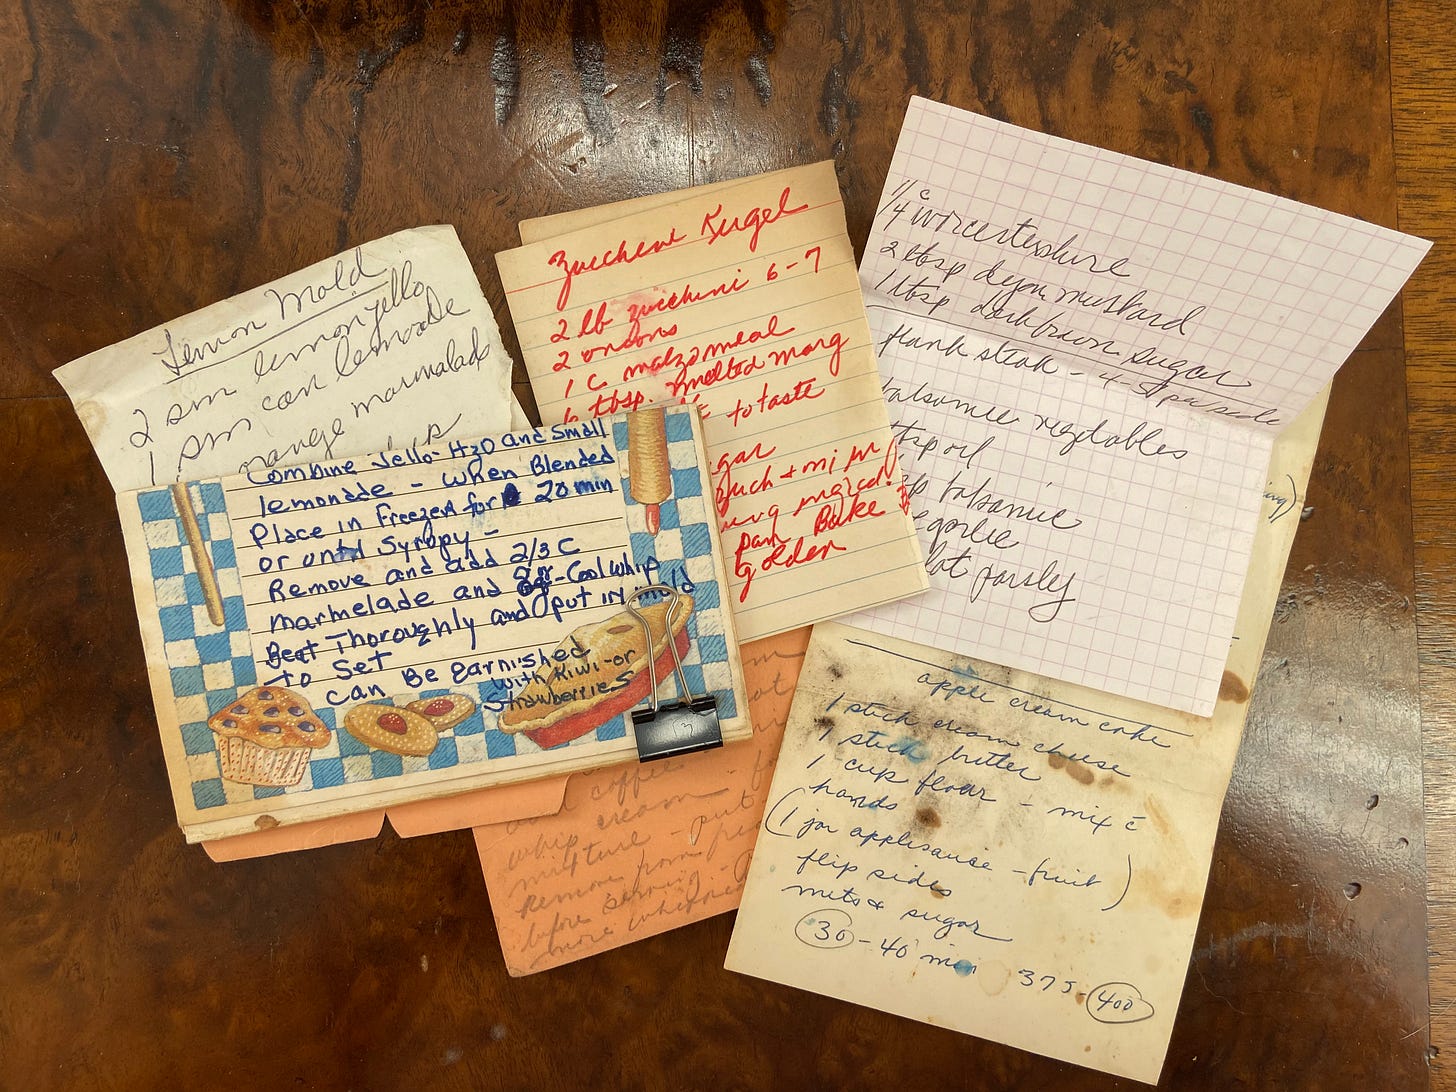 Lemon Mold
2 sm lemon jello
1 sm can lemonade
orange marmalade
Combine Jello - H2O and Small
lemonade - when Blended
Place in Freezer for 20 min
or until Syropy -
Remove and add 2/3 C
marmelade and 8oz - Cool whip
Beat Thoroughly and put in mold
to Set
can Be garnished
with Kiwi - or
Strawberries
Zucchini Kugel
2 lb zucchini 6-7
2 onions
1 C matzo meal
6 tbsp. melted marg
to taste
gar
pan Bake
golden
1/4 c worcestershire
2 tbsp dijon mustard
1 tbsp dark brown sugar
flank steak - 4-5 per side
balsamic vegetables
tsp oil
balsamic
garlic
parsley
coffee
whip cream
mixture - put
Remove from
before serving -
more whipped
apple cream cake
1 stick cream cheese
1 stick butter
1 cup flour - mix c̄
hands
(1 jar applesauce - fruit)
flip sides
nuts & sugar
30 - 40 min 375 - 400